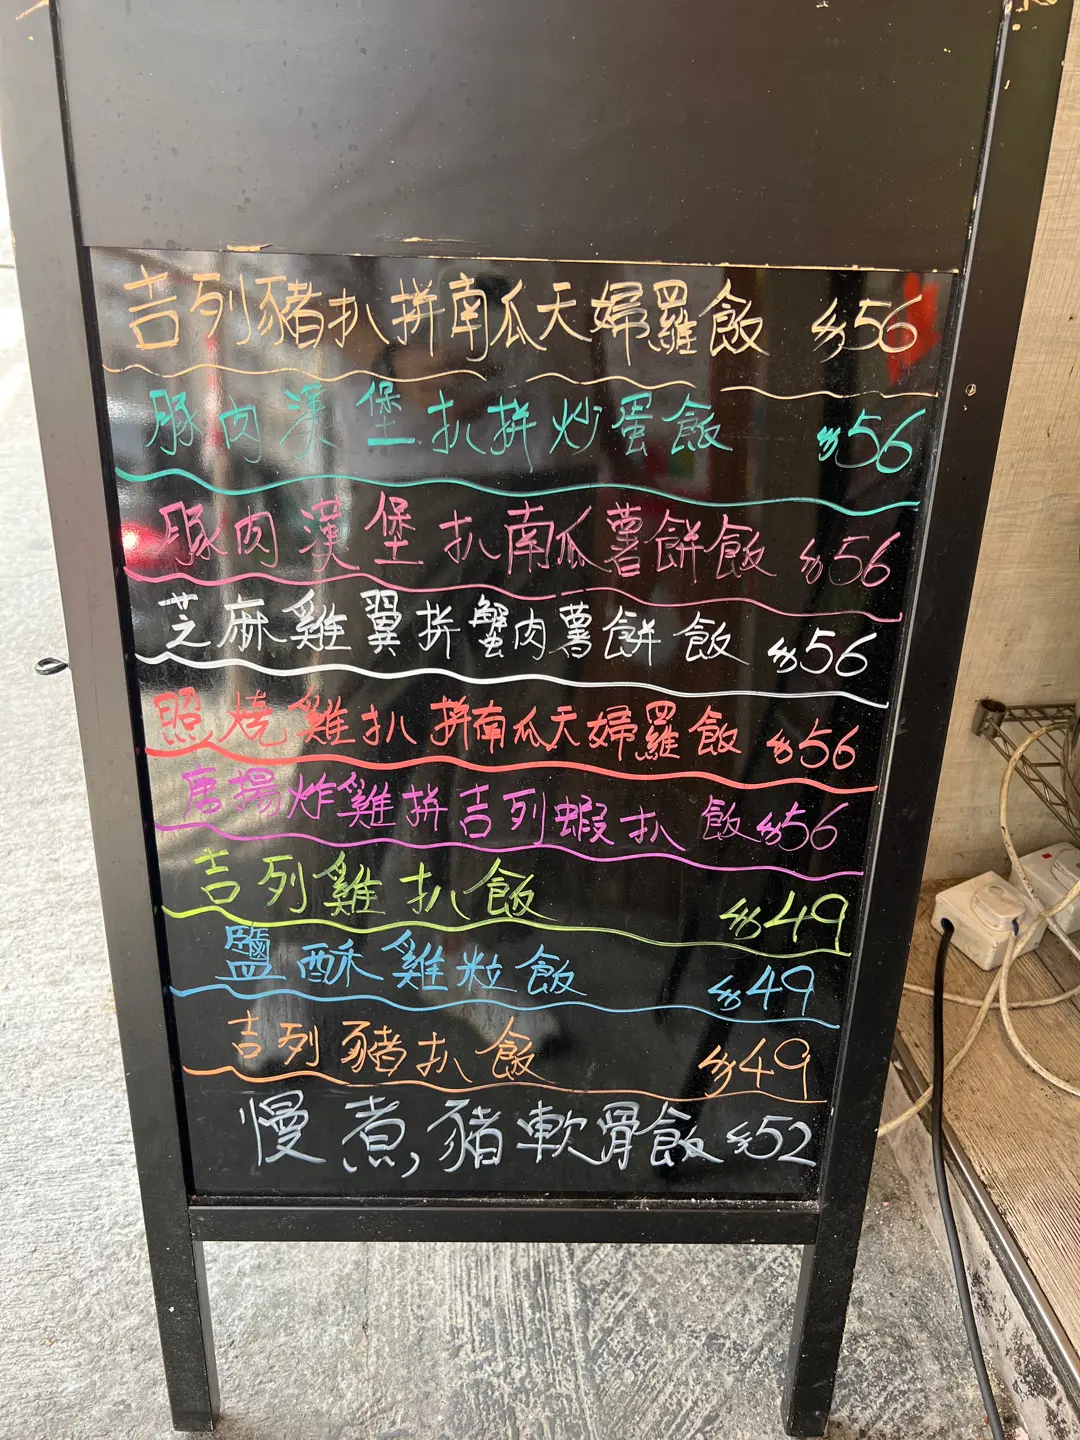 吉列豬扒拼南瓜天婦羅飯 $56
豚肉漢堡扒拼炒蛋飯 $56
豚肉漢堡扒南瓜薯餅飯 $56
芝麻雞翼拼蟹肉薯餅飯 $56
照燒雞扒拼南瓜天婦羅飯 $56
唐揚炸雞拼吉列蝦扒飯 $56
吉列雞扒飯 $49
鹽酥雞粒飯 $49
吉列豬扒飯 $49
慢煮豬軟骨飯 $52